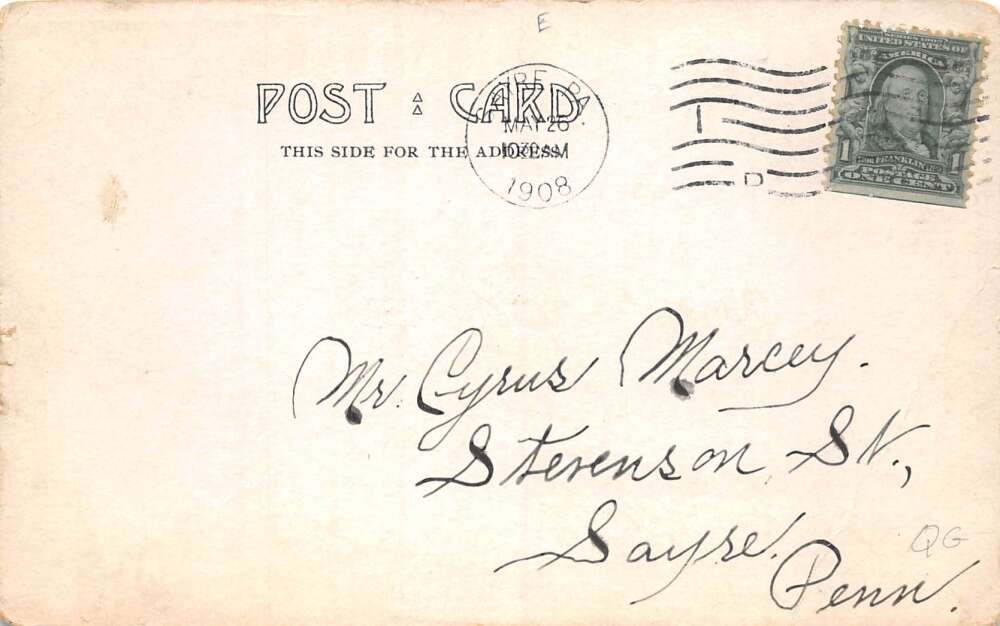 E
POST CARD
THIS SIDE FOR THE ADDRESS
PA.
MAY 26
1908
D
SERIES 1902
UNITED STATES OF
AMERICA
1 FRANKLIN 1
POSTAGE
ONE CENT
Mr. Cyrus Marcey.
Stevenson St.,
Sayre.
Penn.
QG